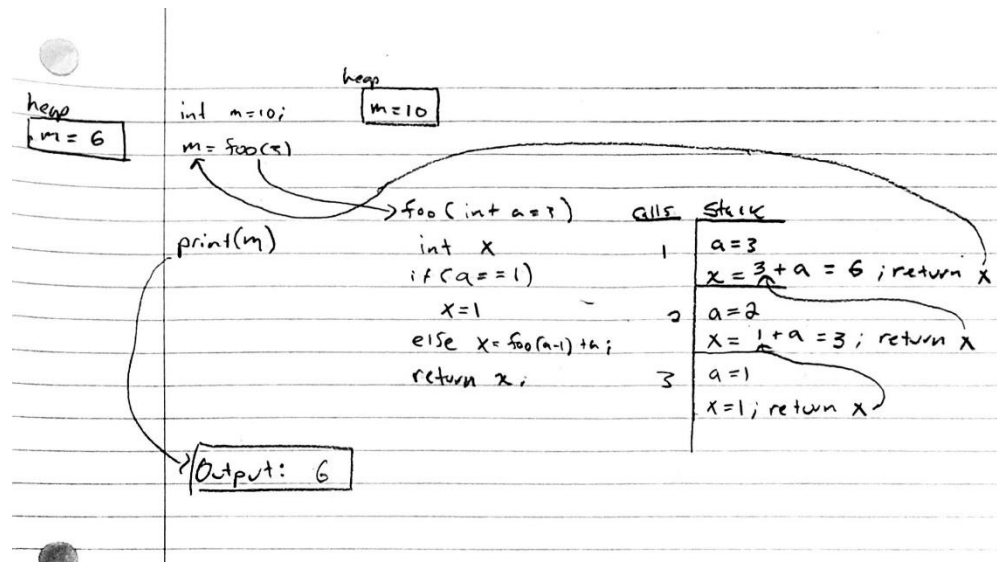 heap
m=10
heap
m = 6
int m=10;
m = foo(3)
print(m)
foo (int a=3)
int x
if(a==1)
x=1
else x=foo(a-1)+a;
return x;
calls Stack
1 a=3
x = 3+a = 6 ; return x
2 a=2
x = 1+a = 3 ; return x
3 a=1
x=1; return x
Output: 6